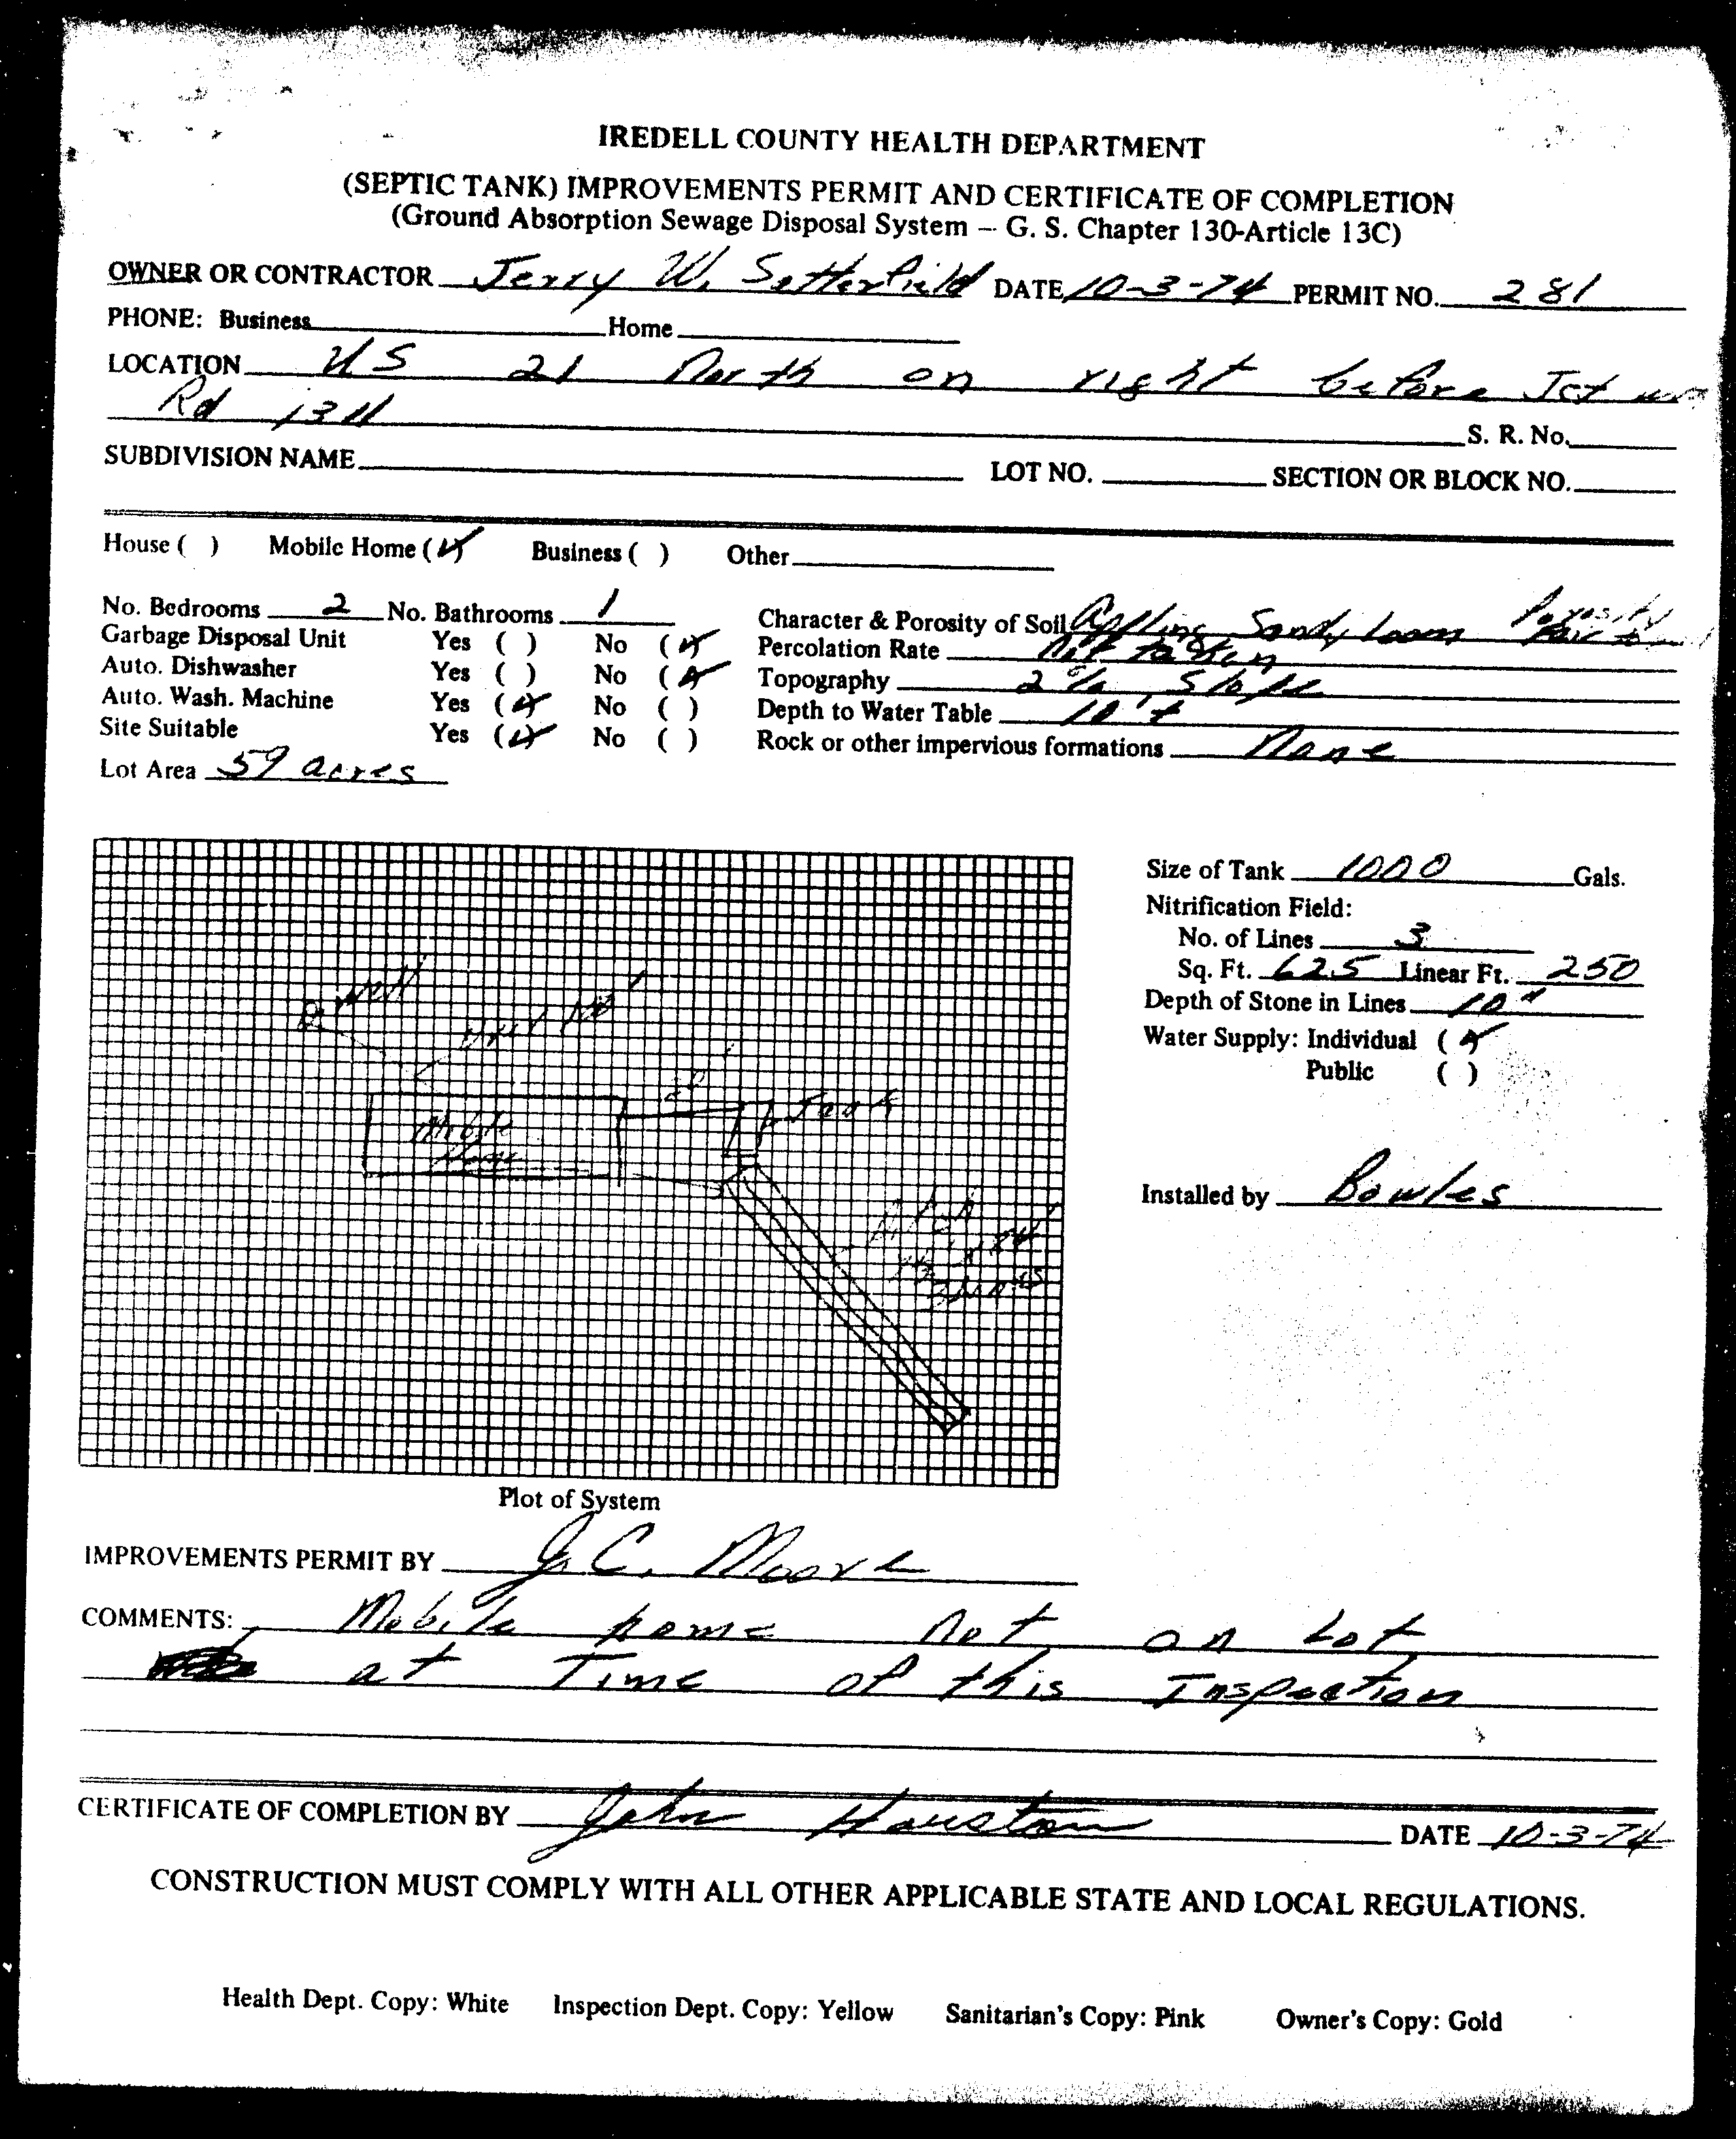 IREDELL COUNTY HEALTH DEPARTMENT
(SEPTIC TANK) IMPROVEMENTS PERMIT AND CERTIFICATE OF COMPLETION
(Ground Absorption Sewage Disposal System – G. S. Chapter 130-Article 13C)
OWNER OR CONTRACTOR Jerry W. Setterfield DATE 10-3-74 PERMIT NO. 281
PHONE: Business Home
LOCATION US 21 North on right before Jct
Rd 1311
S. R. No.
SUBDIVISION NAME LOT NO. SECTION OR BLOCK NO.
House ( ) Mobile Home (✓) Business ( ) Other
No. Bedrooms 2 No. Bathrooms 1 Character & Porosity of Soil Appling Sandy Loam Porosity
Garbage Disposal Unit Yes ( ) No (✓) Percolation Rate Not taken
Auto. Dishwasher Yes ( ) No (✓) Topography 2% Slope
Auto. Wash. Machine Yes (✓) No ( ) Depth to Water Table 10'+
Site Suitable Yes (✓) No ( ) Rock or other impervious formations None
Lot Area 59 acres
Size of Tank 1000 Gals.
Nitrification Field:
No. of Lines 3
Sq. Ft. 625 Linear Ft. 250
Depth of Stone in Lines 10"
Water Supply: Individual (✓)
Public ( )
Installed by Bowles
well
over 100'
20'
Tank
Mobile
Home
3 lines
Plot of System
IMPROVEMENTS PERMIT BY J. C. Moore
COMMENTS: Mobile home not on Lot
at Time of this Inspection
CERTIFICATE OF COMPLETION BY John Houston DATE 10-3-74
CONSTRUCTION MUST COMPLY WITH ALL OTHER APPLICABLE STATE AND LOCAL REGULATIONS.
Health Dept. Copy: White Inspection Dept. Copy: Yellow Sanitarian's Copy: Pink Owner's Copy: Gold